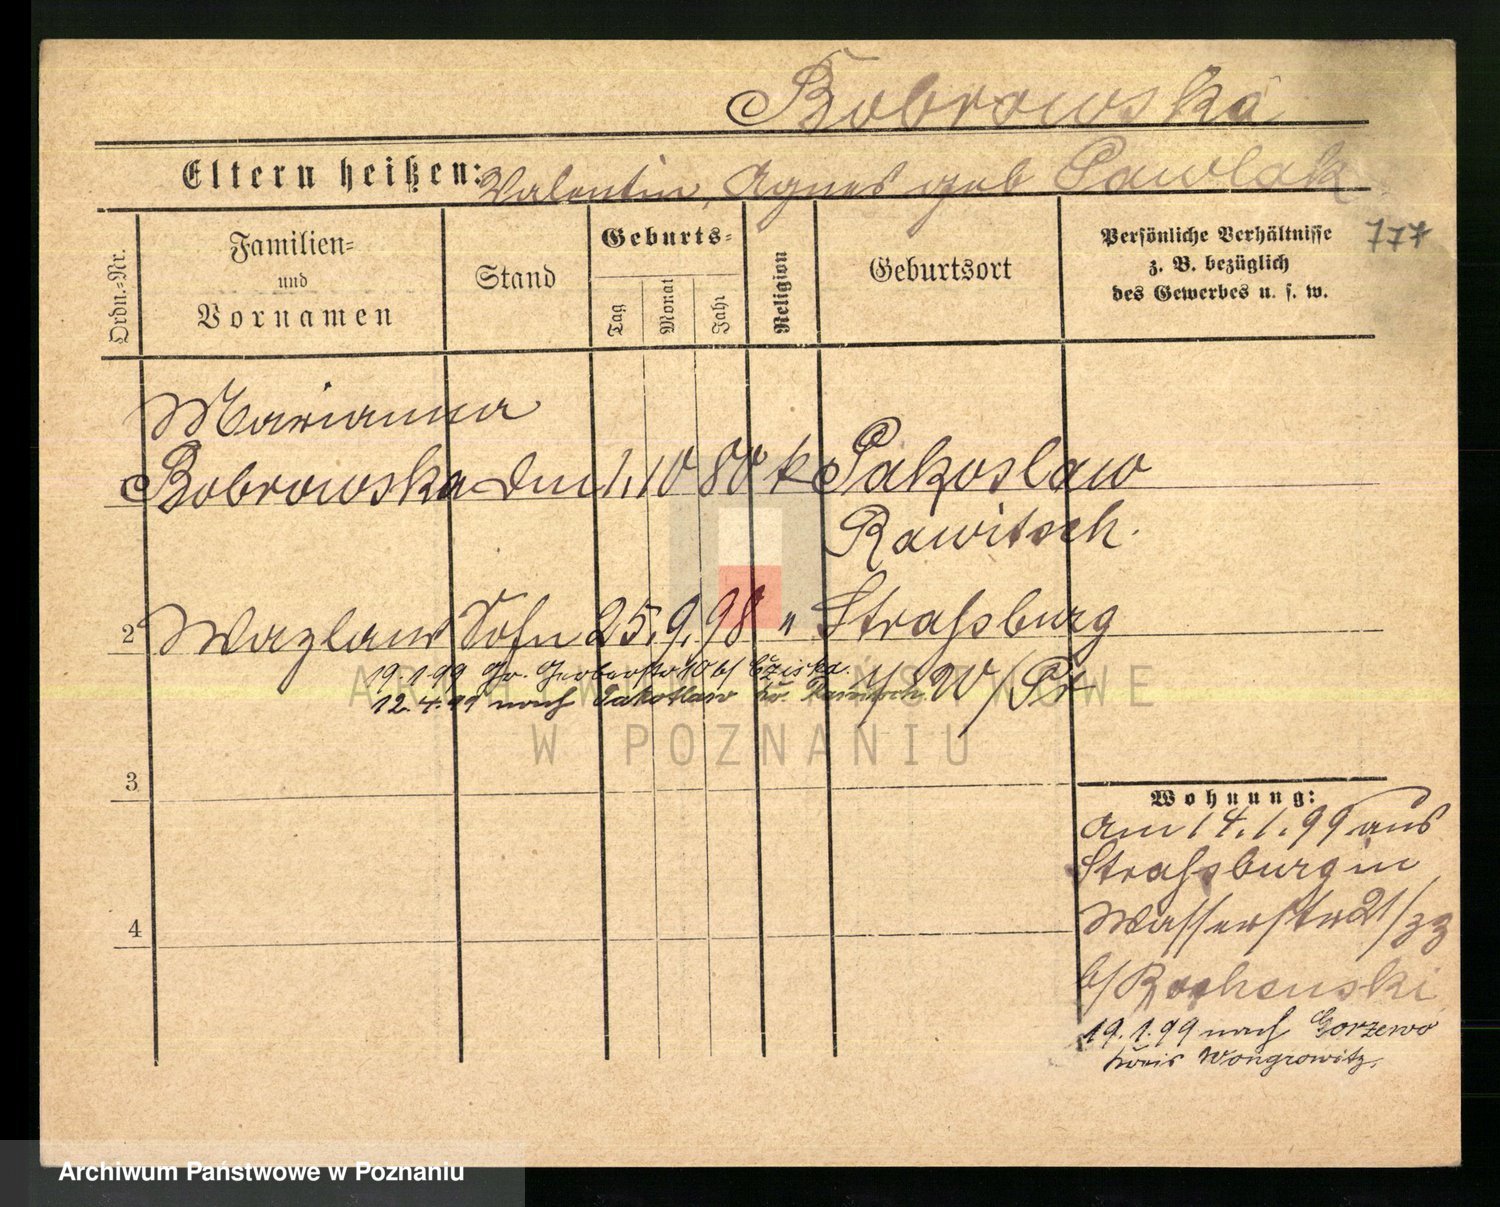 Bobrowska
Eltern heißen: Valentin, Agnes geb Pawlak
777
Ordn.-Nr.
Familien-
und
Vornamen
Stand
Geburts-
Tag
Monat
Jahr
Religion
Geburtsort
Persönliche Verhältnisse
z. B. bezüglich
des Gewerbes u. s. w.
Marianna
Bobrowska 1. 10 80 k Pakoslaw
Rawitsch.
2 Wazlaw Sohn 25. 9. 98 " Straßburg
i/ W/Pr
19. 1 99 Gr. Gerberstr 10 b/
12. 4. 99 nach Pakoslaw Kr. Rawitsch.
3
4
Wohnung:
am 14. 1. 99 aus
Straßburg in
Wasserstr 21/
b/
19. 1. 99 nach Gorzewo
Kreis Wongrowitz.
ARCHIWUM PAŃSTWOWE
W POZNANIU
Archiwum Państwowe w Poznaniu